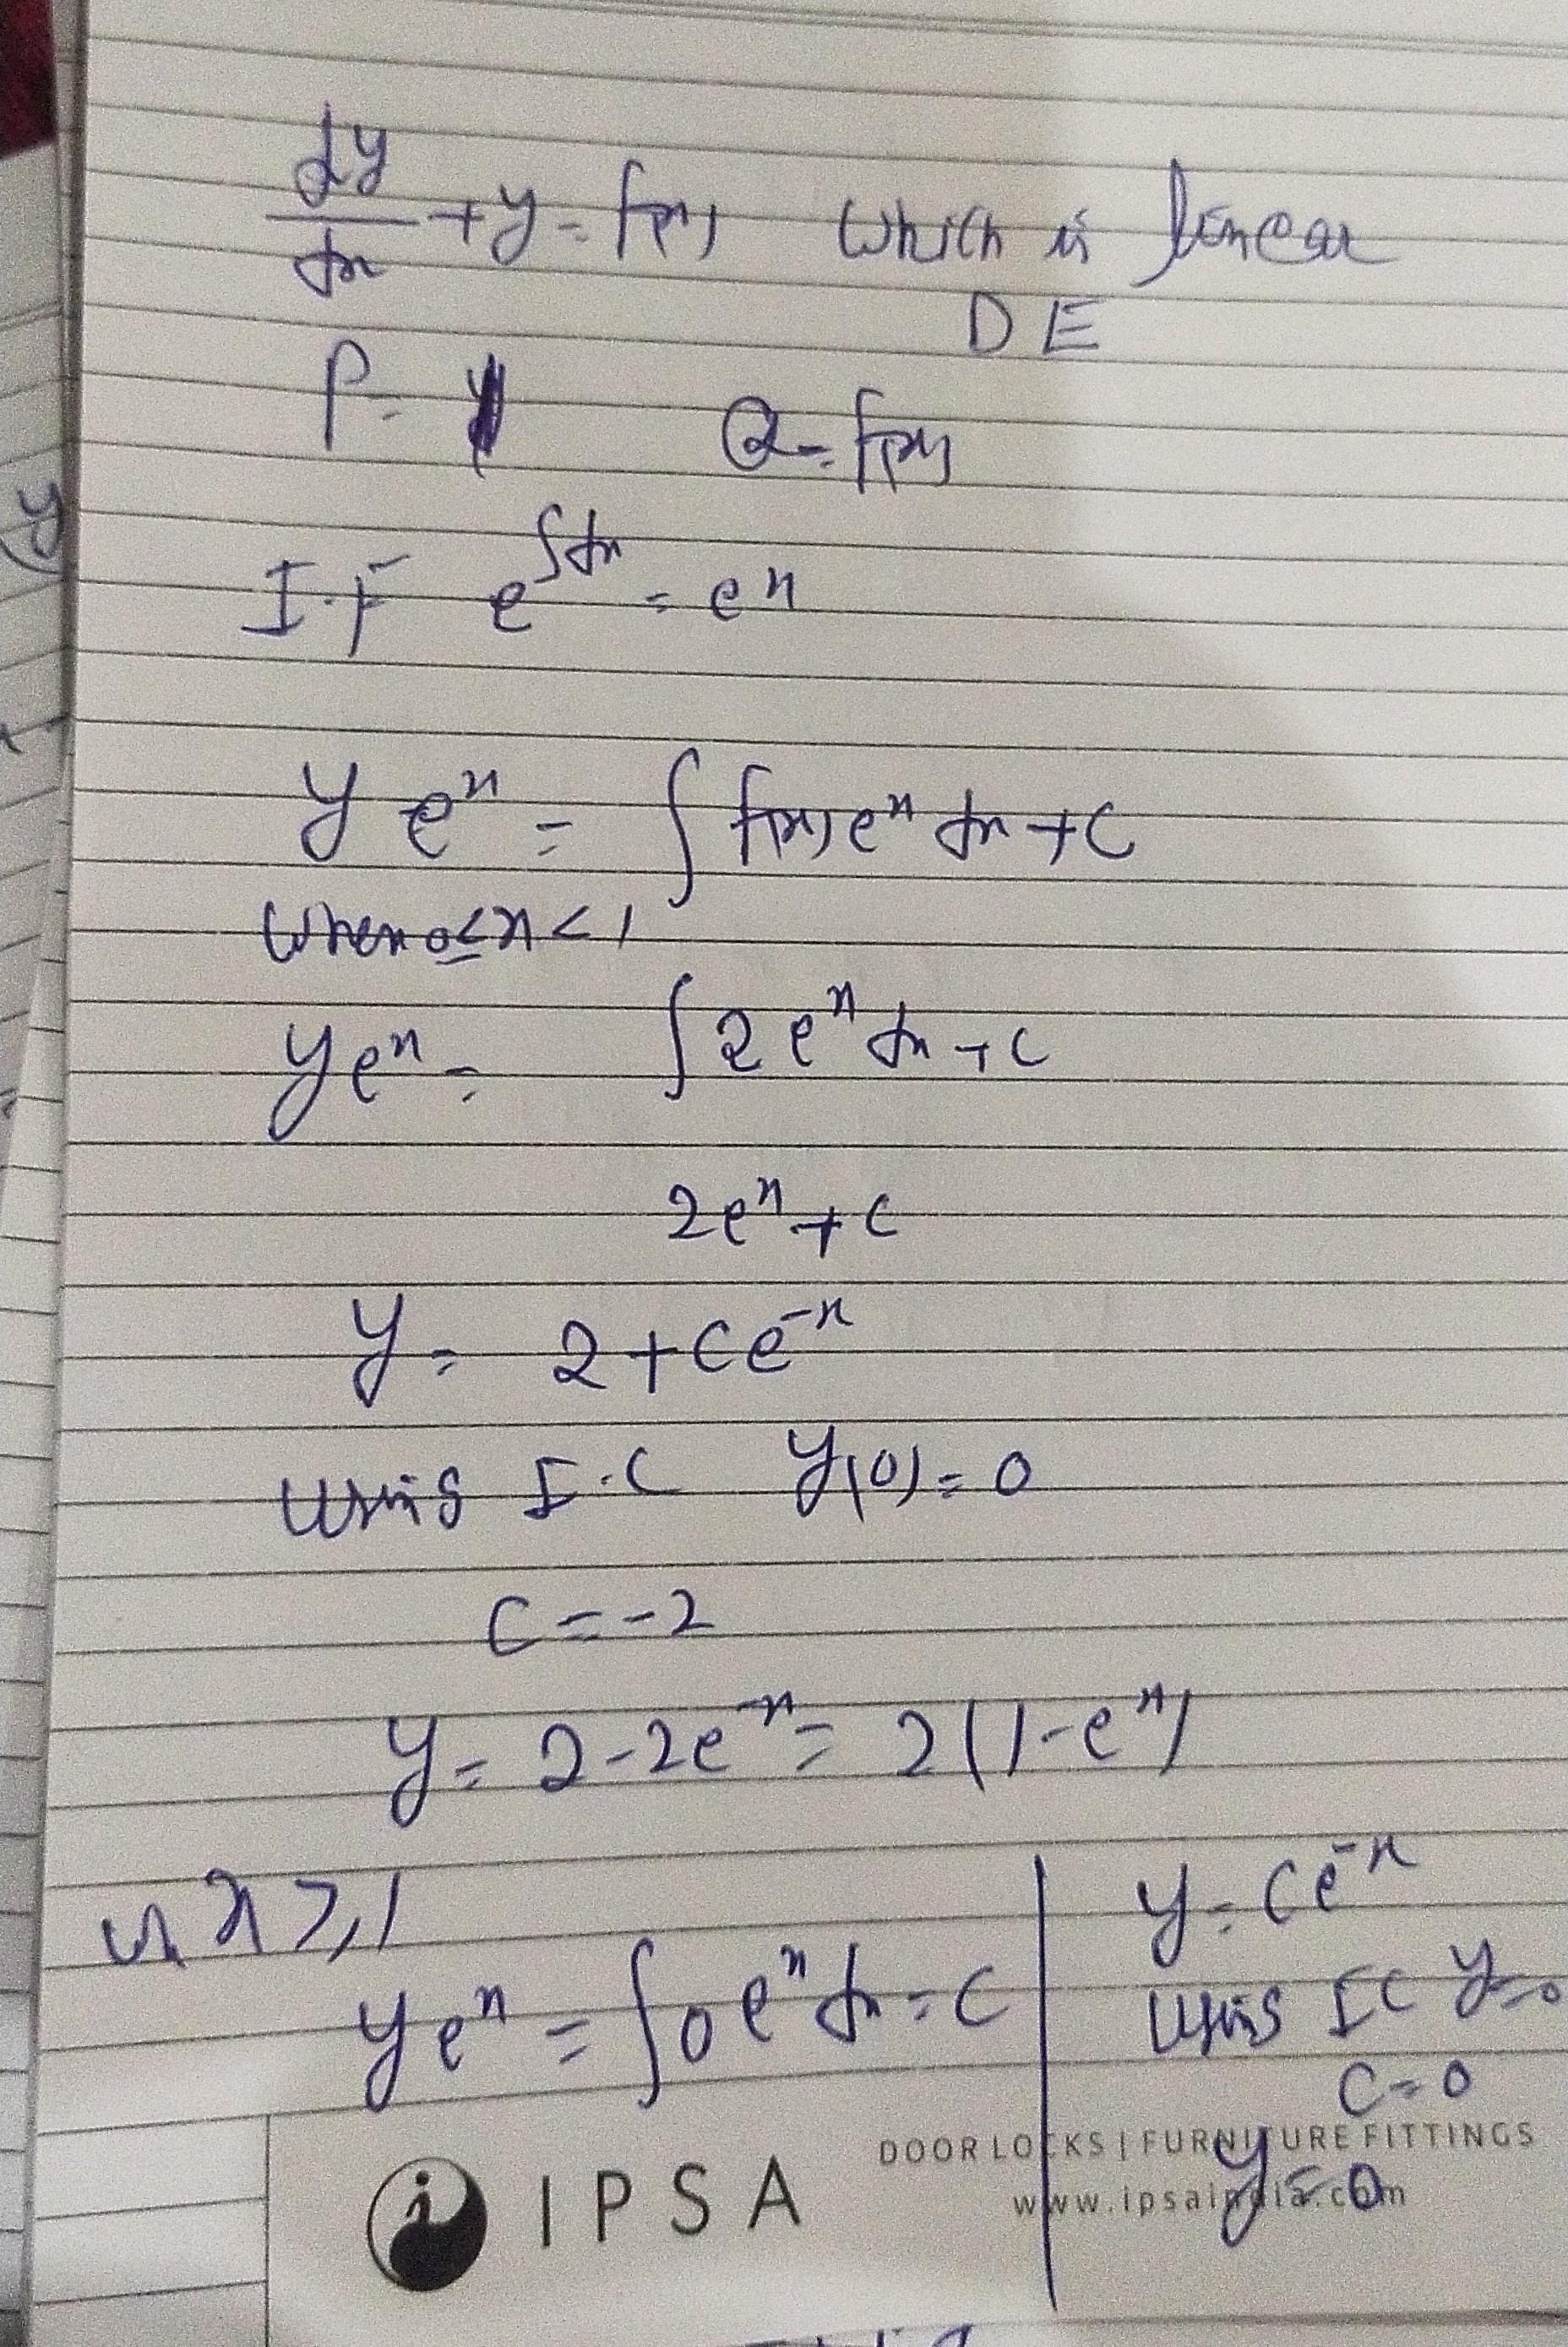 dy/dx + y = f(x) which is linear
DE
P = 1 Q = f(x)
I.F e^∫dx = e^x
y e^x = ∫ f(x) e^x dx + c
when 0 ≤ x < 1
y e^x = ∫ 2 e^x dx + c
2e^x + c
y = 2 + c e^-x
using I.C y(0) = 0
c = -2
y = 2 - 2e^-x = 2(1 - e^x)
x ≥ 1
y e^x = ∫ 0 e^x dx = c
y = c e^-x
using IC y = 0
C = 0
y = 0
IPSA
DOOR LOCKS | FURNITURE FITTINGS
www.ipsaindia.com